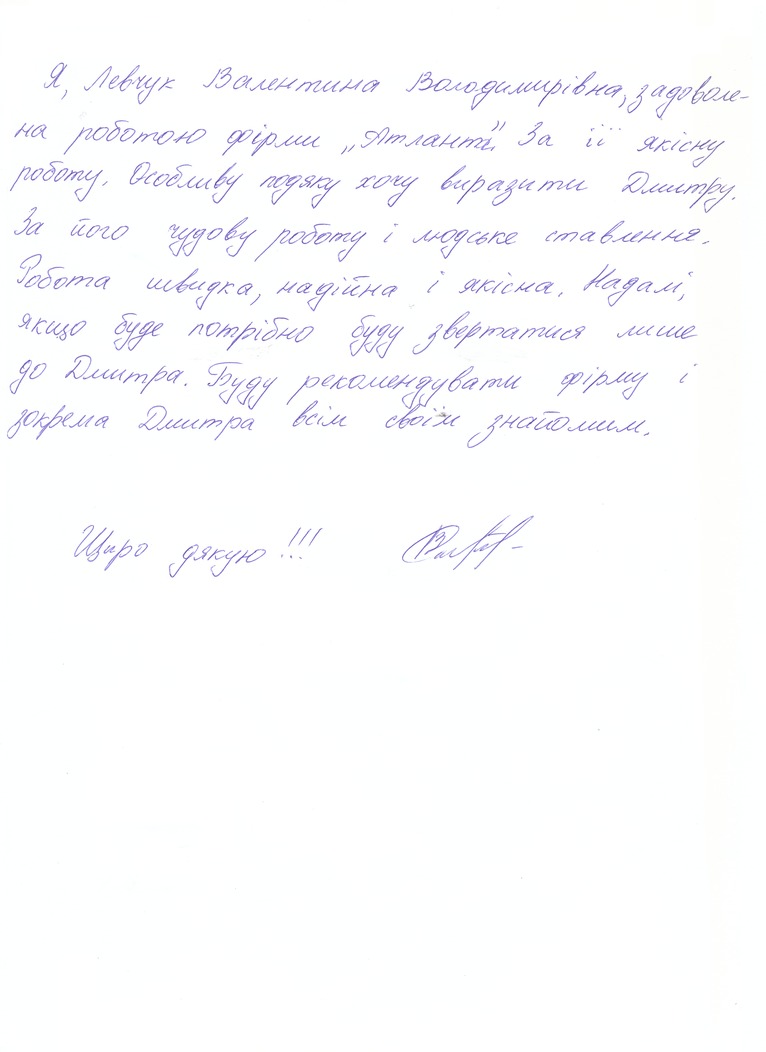 Я, Левчук Валентина Володимирівна, задоволе-
на роботою фірми „Атланта". За її якісну
роботу. Особливу подяку хочу виразити Дмитру.
За його чудову роботу і людське ставлення.
Робота швидка, надійна і якісна. Надалі,
якщо буде потрібно буду звертатися лише
до Дмитра. Буду рекомендувати фірму і
зокрема Дмитра всім своїм знайомим.
Щиро дякую!!!